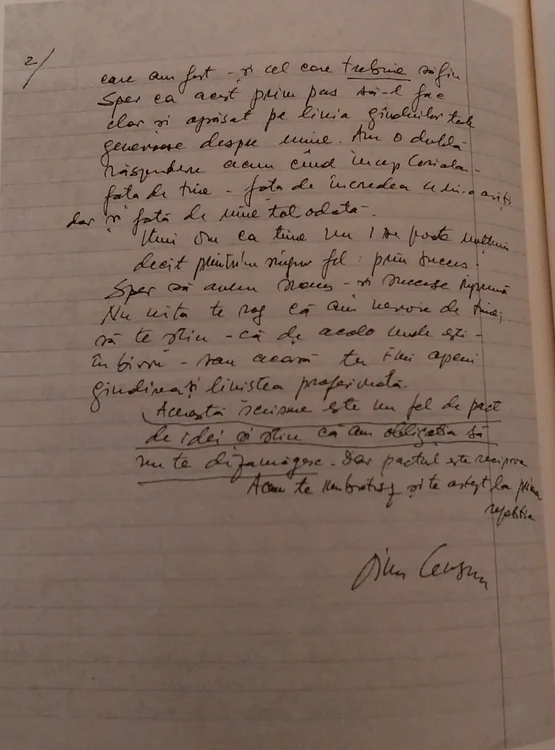 2/
care am fost - și cel care trebuie să fiu
Sper ca acest prim pas să-l fac
clar și apăsat pe linia gîndurilor tale
generoase despre mine. Am o dublă
răspundere acum cînd încep Coriolan -
față de tine - față de încrederea ce mi-o
dar și față de mine totodată.
Unui om ca tine nu i se poate mulțumi
decît printr-un singur fel: prin succes.
Sper să avem succes - și succese împreună
Nu uita te rog că am nevoie de tine,
să te știu - că de acolo unde ești -
în birou - sau acasă tu îmi aperi
gîndirea și liniștea profesională.
Această scrisoare este un fel de pact
de idei și știu că am obligația să
nu te dezamăgesc. Dar pactul este reciproc
Acum te îmbrățișez și te aștept la prima
repetiție